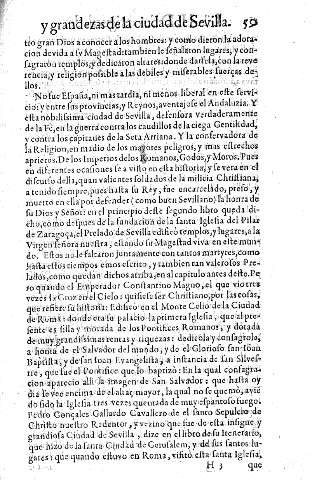 y grandezas de la ciudad de Sevilla. 59
tro gran Dios a conocer a los hombres: y como dieron la adora-
cion devida a su Magestad: tambien le señalaron lugares, y con-
sagraron templos, y dedicaron altares donde darsela, con la reve
rencia, y religion possible a las debiles y miserables fuerças de-
llos.
No fue España, ni mas tardia, ni menos liberal en este servi-
cio: y entre sus provincias, y Reynos, aventajose el Andaluzia. Y
esta nobilissima ciudad de Sevilla, defensora verdaderamente
de la Fè, en la guerra contra los caudillos de la ciega Gentilidad,
y contra los capitanes de la Seta Arriana. Y la conservadora de
la Religion, en medio de los mayores peligros, y mas estrechos
aprietos. De los Imperios de los Romanos, Godos, y Moros. Pues
en diferentes ocasiones se a visto en esta historia, y se verà en el
discurso della, quan valientes soldados de la milicia Christiana,
a tenido siempre, pues hasta su Rey, fue encarcelado, preso, y
muerto en ella por defender (como buen Sevillano) la honra de
su Dios y Señor: en el principio deste segundo libro queda di-
cho, como despues de la fundacion de la santa Iglesia del Pilar
de Zaragoça, el Prelado de Sevilla edificò templos, y lugares, a la
Virgen señora nuestra, estando su Magestad viva en este mun-
do. Estos no le faltaron juntamente con tantos martyres, como
hasta estos tiempos emos escrito, y tambien tan valerosos Pre-
lados, como quedan dichos arriba, en al capitulo antes deste. Pe
ro quando el Emperador Constantino Magno, el que vio tres
vezes la Cruz en el Cielo: quiso ser Christiano, por las cosas,
que refiere su historia: Edificò en el Monte Celio de la Ciudad
de Roma: donde era su palacio la primera Iglesia, que al pre-
sente es silla y morada de los Pontifices Romanos, y dotada
de muy grandissimas rentas y riquezas: dedicola y consagrola,
a honra de el Salvador del mundo, y de el Glorioso san Ioan
Baptista, y de san Ioan Evangelista, a instancia de San Silves-
tre, que fue el Pontifice que lo baptizò: En la qual consagra-
cion aparecio alli la imagen de San Salvador: que hasta oy
dia le veo encima de el altar mayor, la qual no se quemò, avie
do sido la Iglesia tres vezes quemada de muy espantoso fuego.
Pedro Gonçales Gallardo Cavallero de el santo Sepulcro de
Christo nuestro Redentor, y vezino que fue de esta insigne y
grandiosa Ciudad de Sevilla, dize en el libro de su Itenerario,
que hizo de la santa Ciudad de Gerusalem, y de sus santos lu-
gares: que quando estuvo en Roma, visitò esta santa Iglesia,
H 3 que